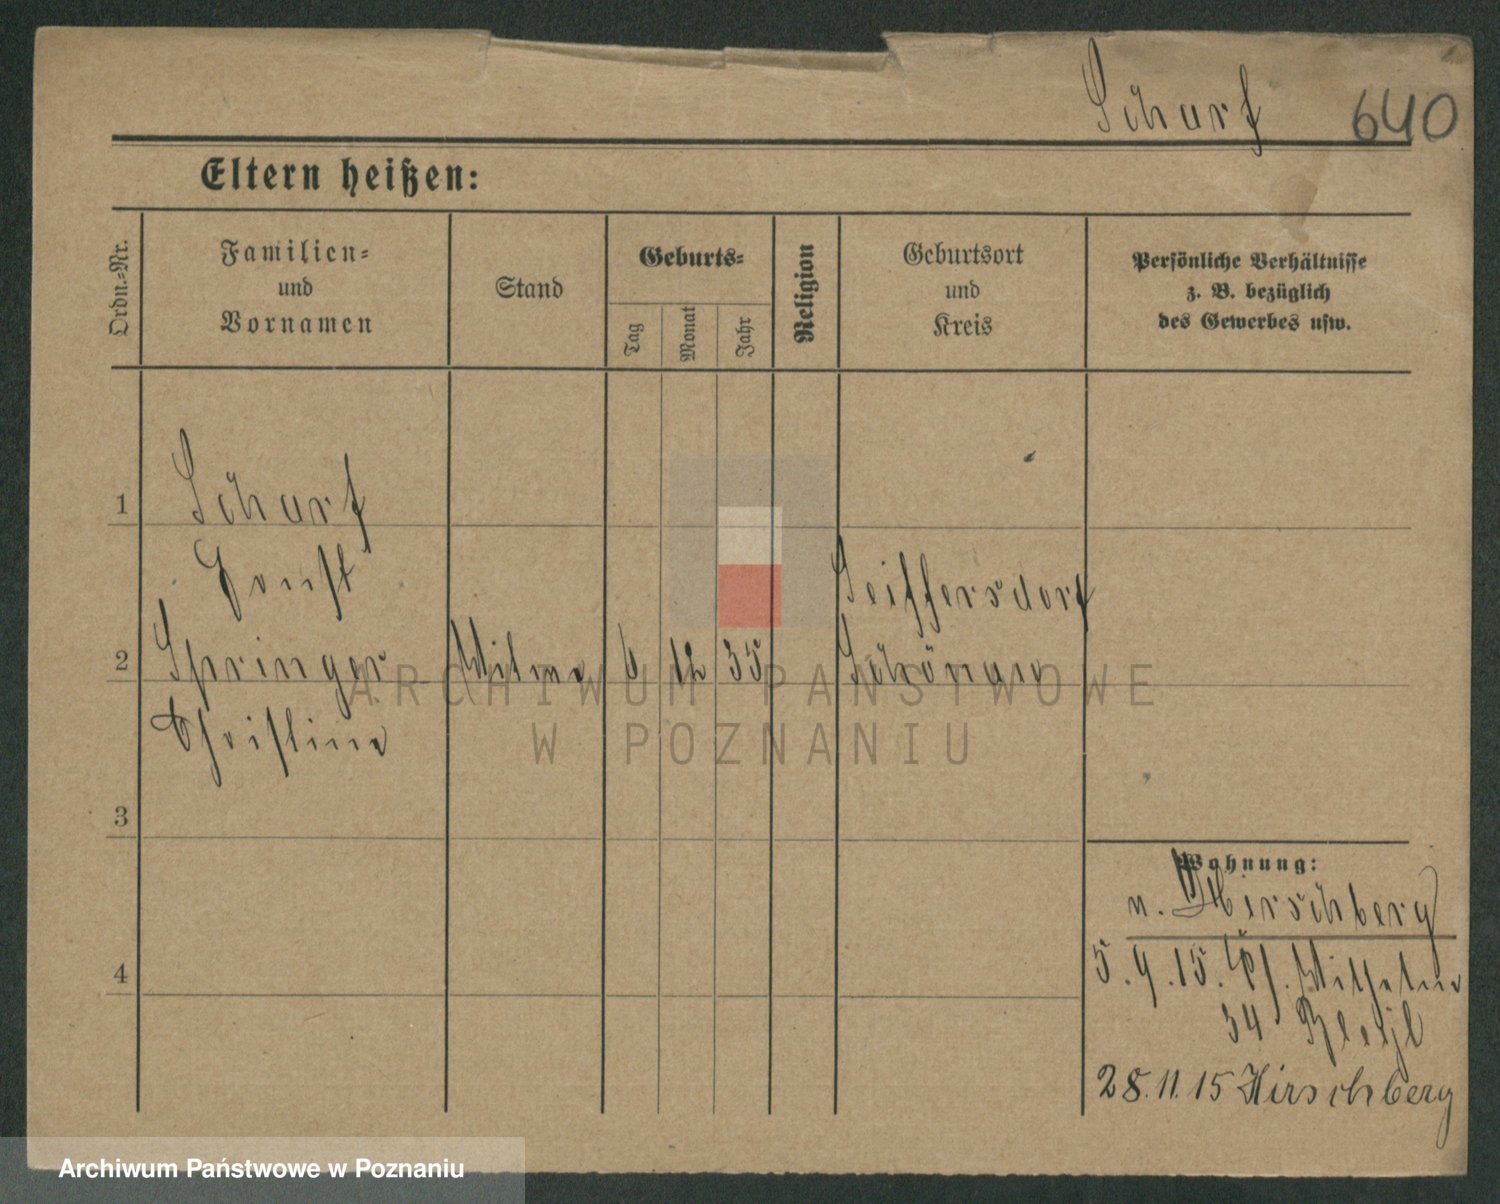 Scharf 640
Eltern heißen:
Ordn.-Nr.
Familien-
und
Vornamen
Stand
Geburts-
Tag
Monat
Jahr
Religion
Geburtsort
und
Kreis
Persönliche Verhältnisse
z. B. bezüglich
des Gewerbes usw.
1 Scharf
Ernst
Seiffersdorf
2 Springer Witwe 6 12 35 Schönau
Christine
3
4
Wohnung:
n. Hirschberg
5.9.15.
34
28.11.15 Hirschberg
ARCHIWUM PAŃSTWOWE
W POZNANIU
Archiwum Państwowe w Poznaniu